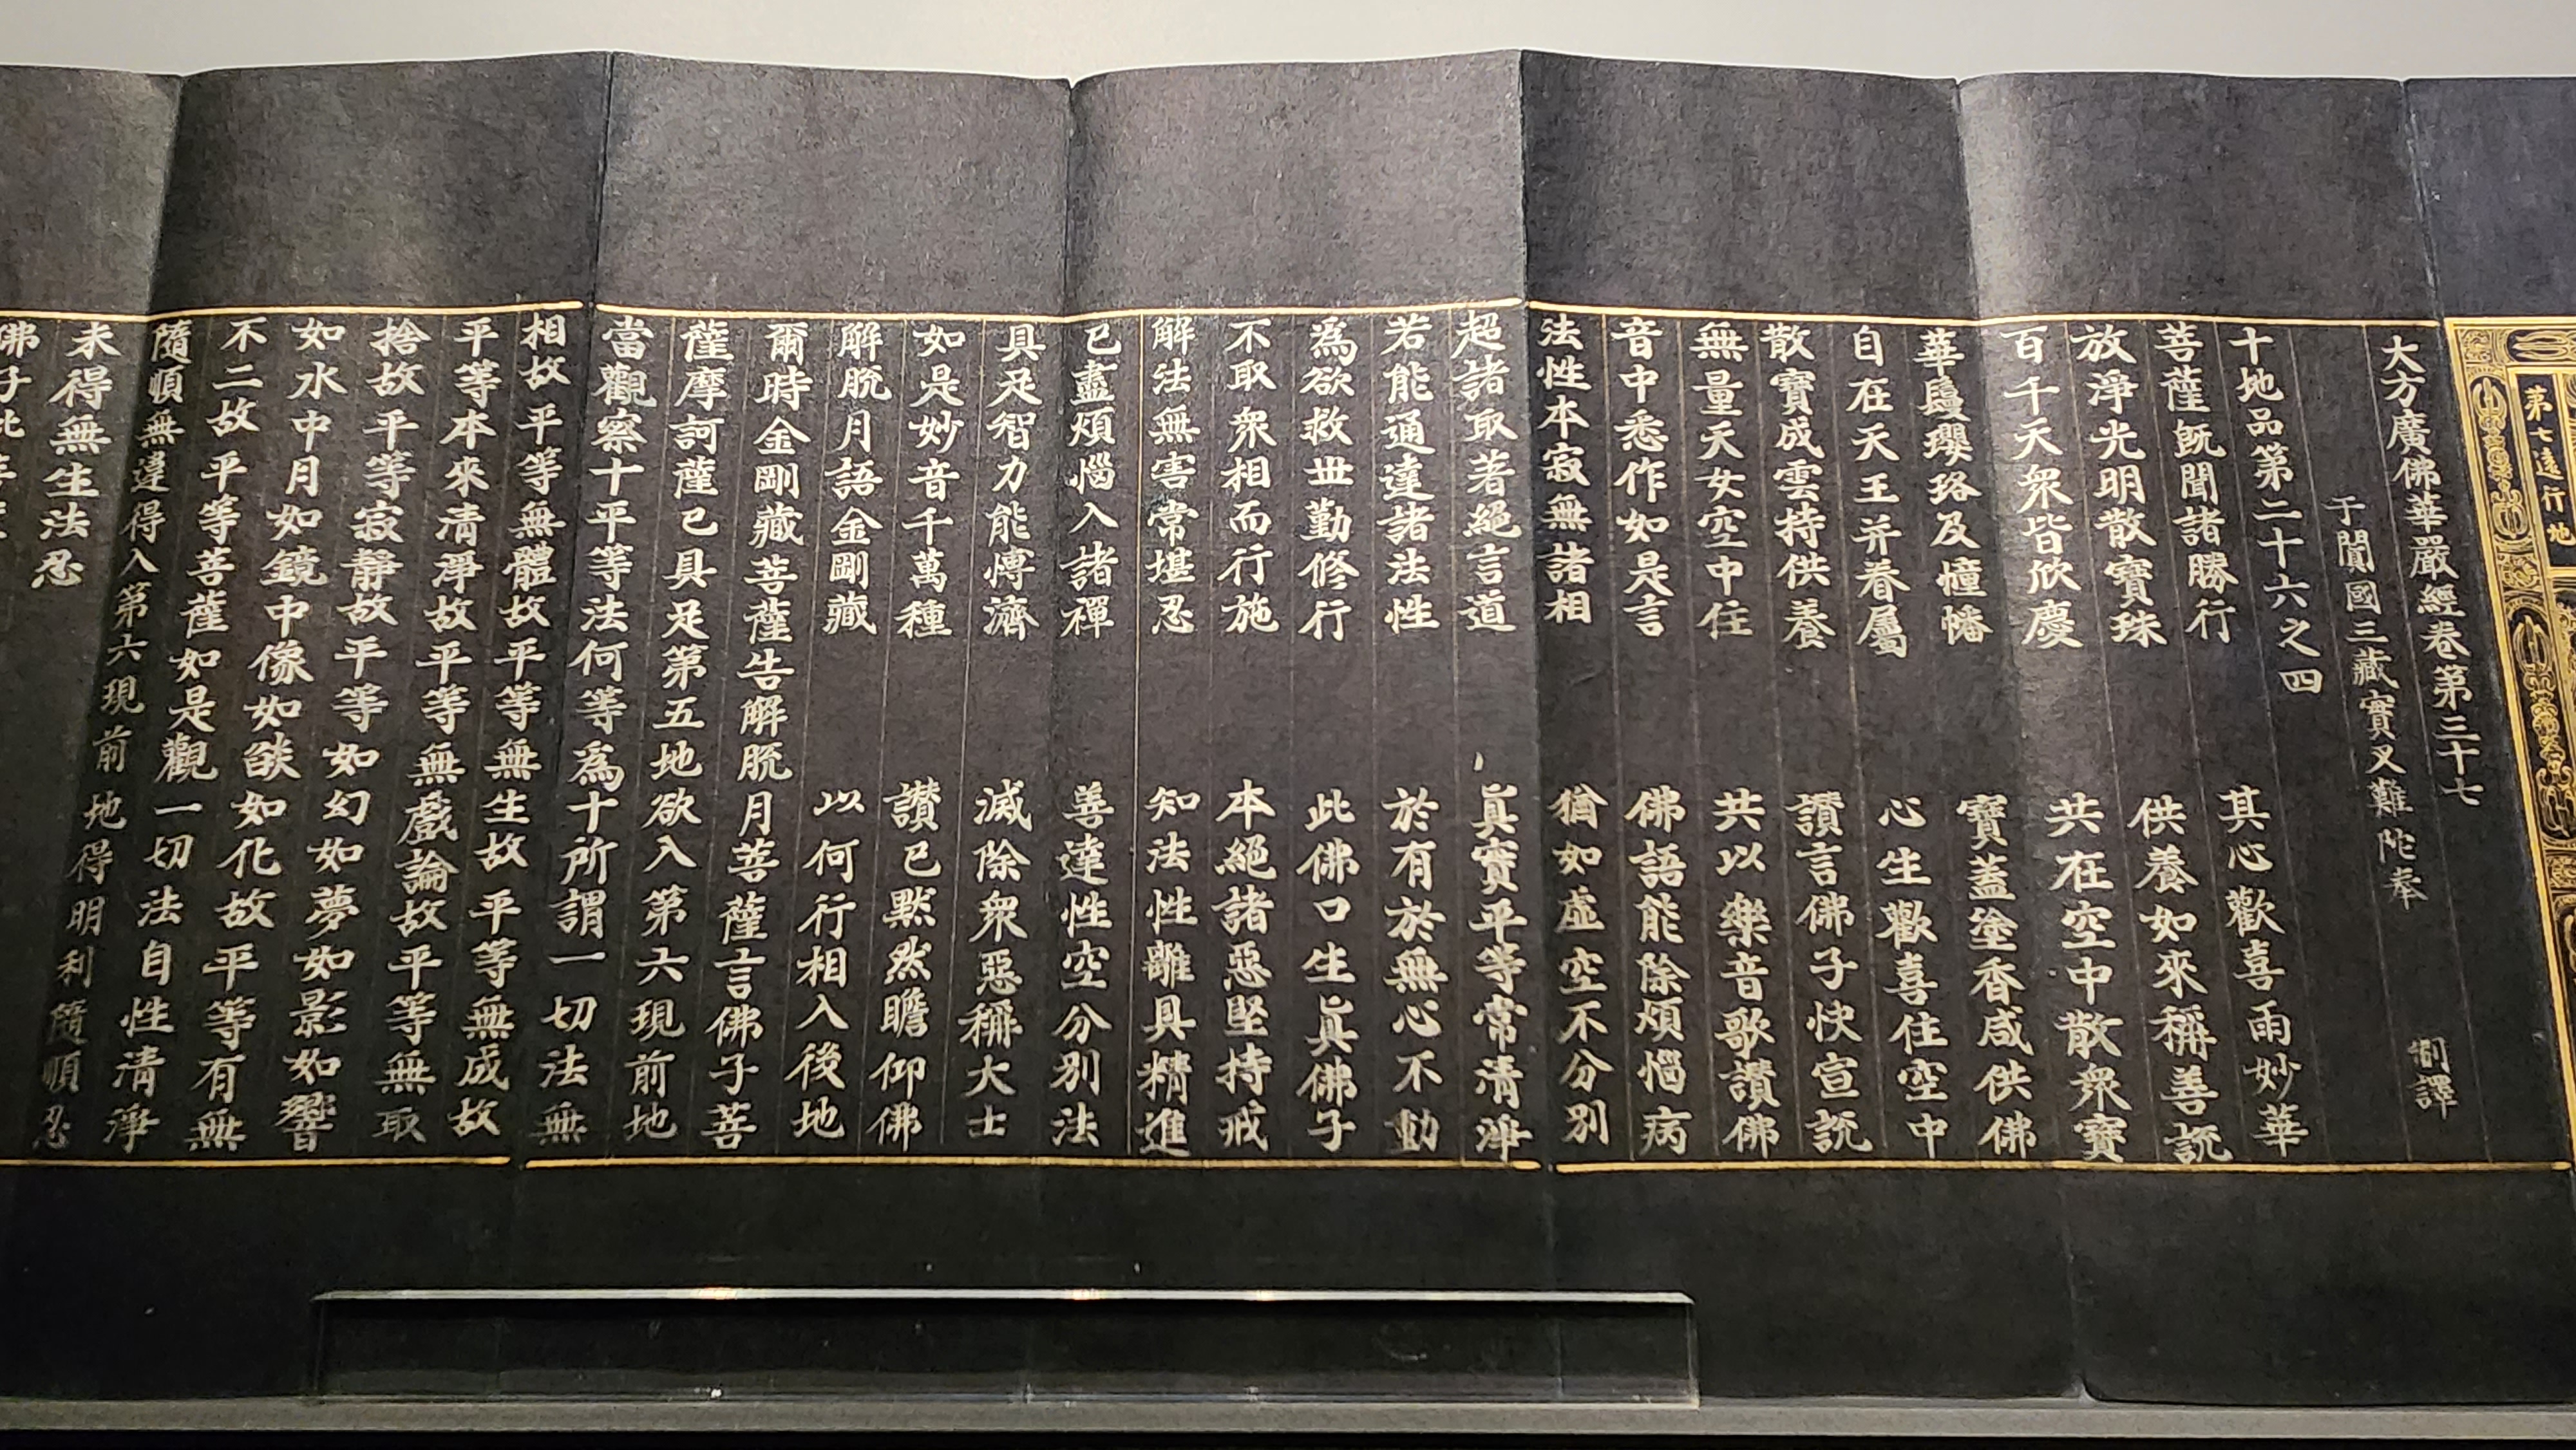 第七遠行地
大方廣佛華嚴經卷第三十七
于闐國三藏實叉難陀奉 制譯
十地品第二十六之四
菩薩既聞諸勝行 其心歡喜雨妙華
放淨光明散寶珠 供養如來稱善說
百千天衆皆欣慶 共在空中散衆寶
華鬘瓔珞及幢幡 寶蓋塗香咸供佛
自在天王并眷屬 心生歡喜住空中
散寶成雲持供養 讚言佛子快宣說
無量天女空中住 共以樂音歌讚佛
音中悉作如是言 佛語能除煩惱病
法性本寂無諸相 猶如虛空不分別
超諸取著絕言道 眞實平等常清淨
若能通達諸法性 於有於無心不動
爲欲救世勤修行 此佛口生眞佛子
不取衆相而行施 本絕諸惡堅持戒
解法無害常堪忍 知法性離具精進
已盡煩惱入諸禪 善達性空分別法
具足智力能愽濟 滅除衆惡稱大士
如是妙音千萬種 讚已默然瞻仰佛
解脫月語金剛藏 以何行相入後地
爾時金剛藏菩薩告解脫月菩薩言佛子菩
薩摩訶薩已具足第五地欲入第六現前地
當觀察十平等法何等爲十所謂一切法無
相故平等無體故平等無生故平等無成故
平等本來清淨故平等無戲論故平等無取
捨故平等寂靜故平等如幻如夢如影如響
如水中月如鏡中像如燄如化故平等有無
不二故平等菩薩如是觀一切法自性清淨
隨順無違得入第六現前地得明利隨順忍
未得無生法忍
佛子此